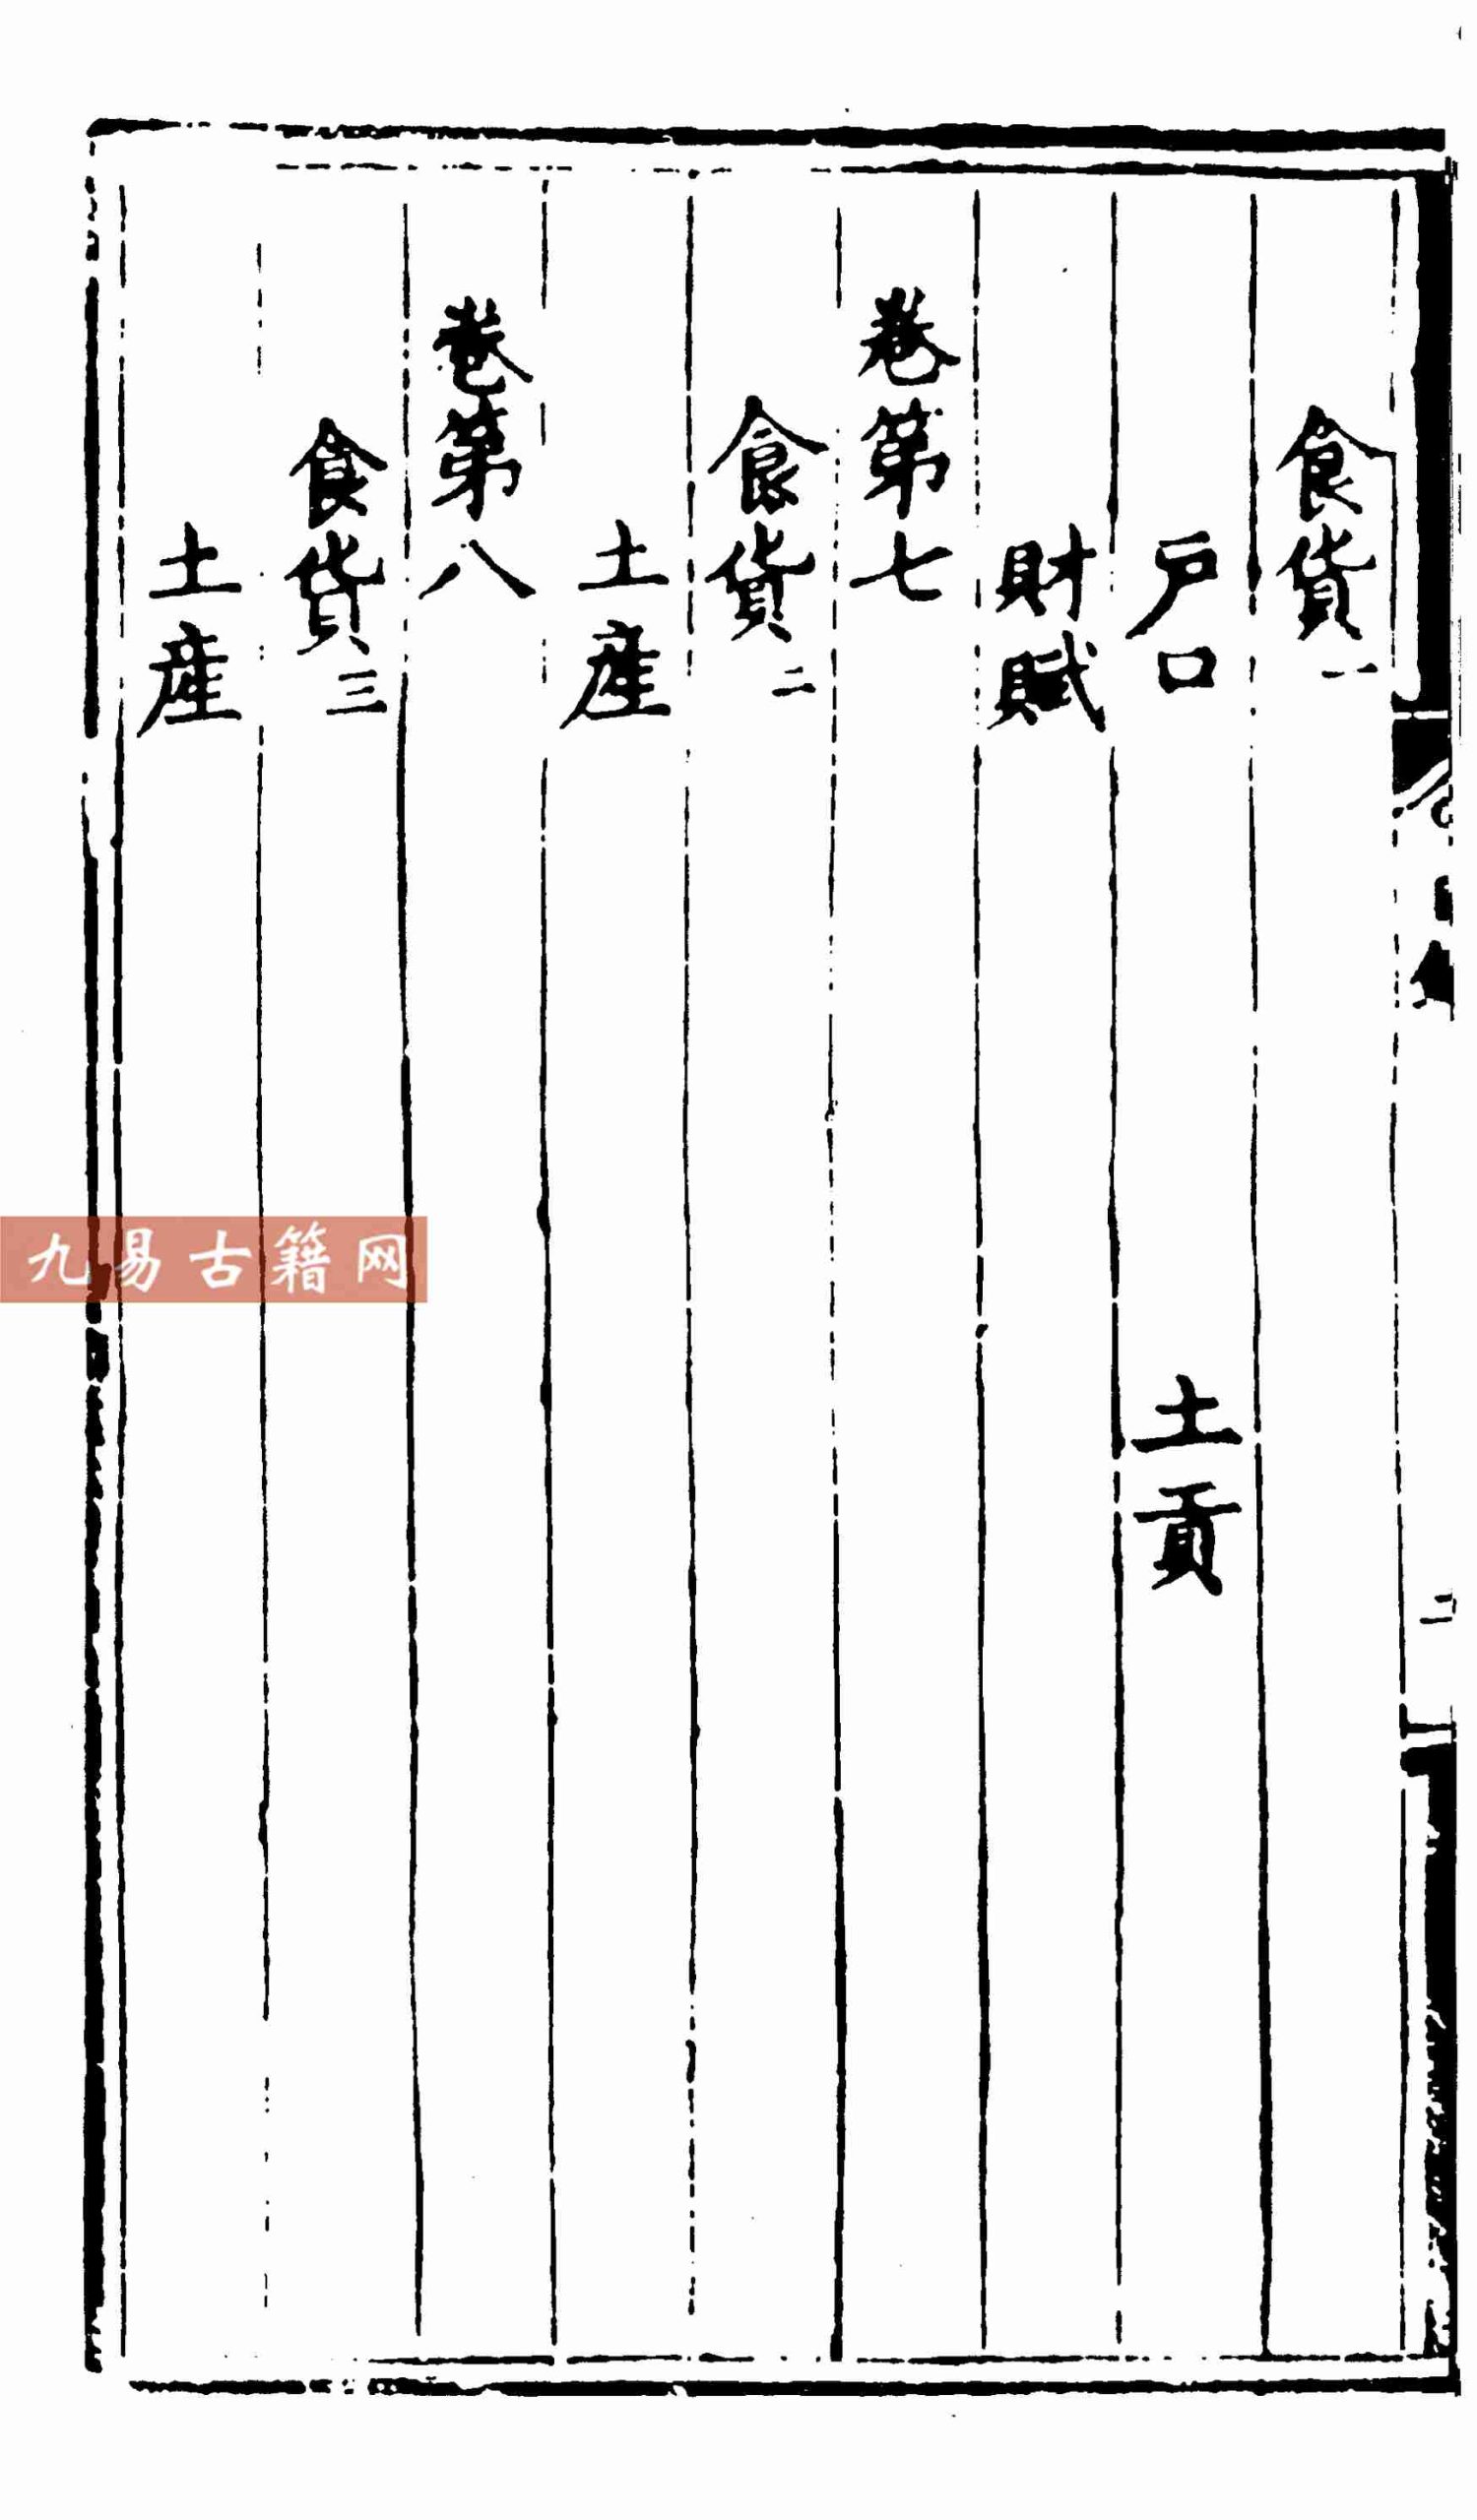 食貨一
戶口 土貢
財賦
卷第七
食貨二
土產
卷第八
食貨三
土產
二
九易古籍网